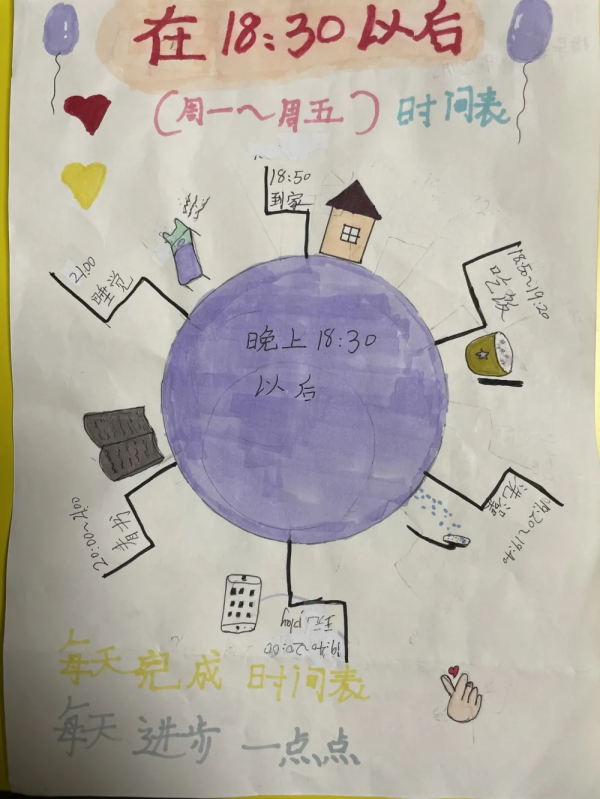 在18:30以后
(周一～周五)时间表
18:50
到家
18:50~19:20
吃饭
晚上18:30
以后
19:20~19:40
洗澡
19:40~20:00
玩play
20:00~21:00
看书
21:00
睡觉
每天完成时间表
每天进步一点点